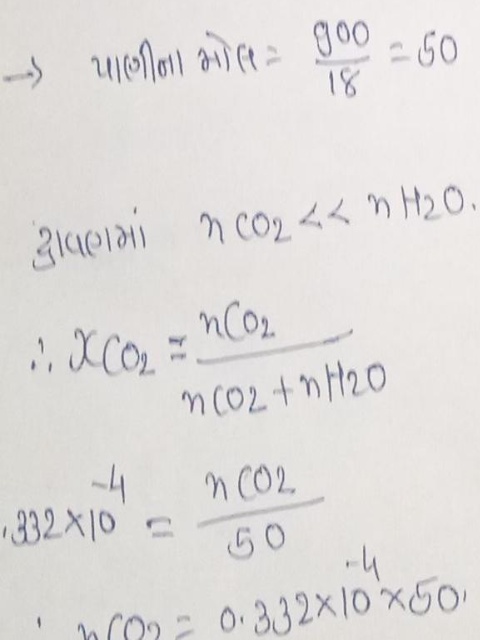 → પાણીના મોલ = 900/18 = 50
દ્રાવણમાં nCO2 << nH2O.
∴ XCO2 = nCO2/nCO2 + nH2O
.332 × 10^-4 = nCO2/50
∴ nCO2 = 0.332 × 10^-4 × 50.